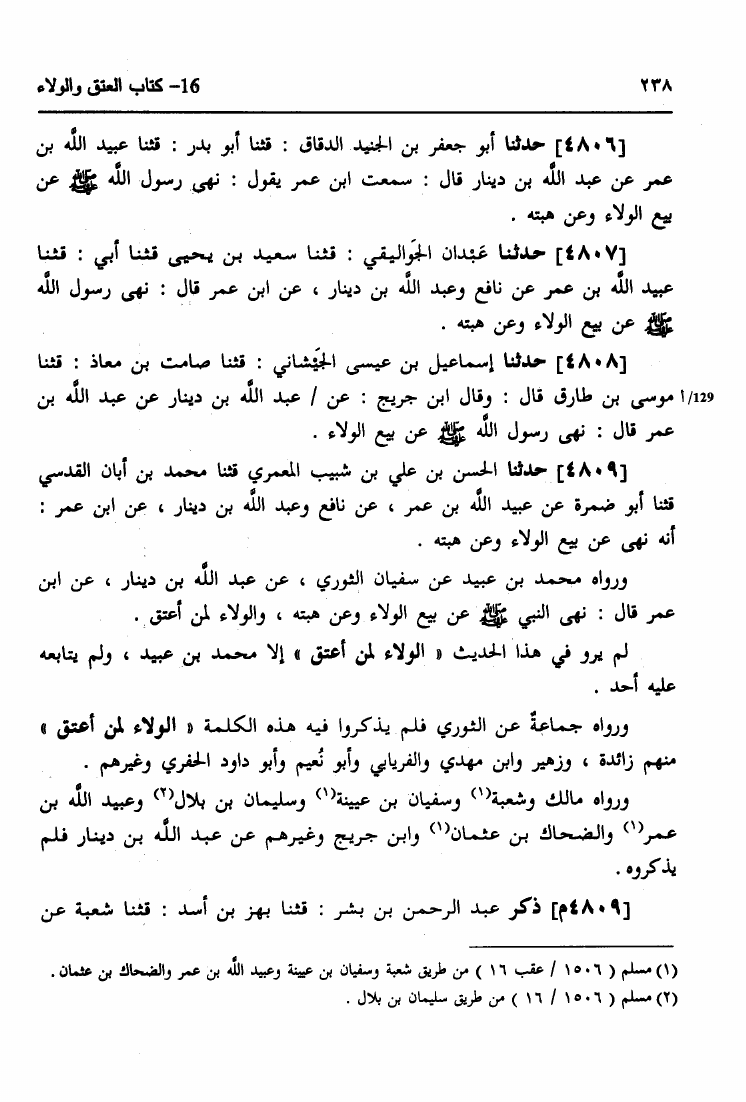 ٢٣٨ 16- كتاب العتق والولاء
[٤٨٠٦] حدثنا أبو جعفر بن الجنيد الدقاق : قثنا أبو بدر : قثنا عبيد اللَّه بن
عمر عن عبد اللَّه بن دينار قال : سمعت ابن عمر يقول : نهى رسول اللَّه ﷺ عن
بيع الولاء وعن هبته .
[٤٨٠٧] حدثنا عَبْدان الجَواليقي : قثنا سعيد بن يحيى قثنا أبي : قثنا
عبيد اللَّه بن عمر عن نافع وعبد اللَّه بن دينار ، عن ابن عمر قال : نهى رسول اللَّه
ﷺ عن بيع الولاء وعن هبته .
[٤٨٠٨] حدثنا إسماعيل بن عيسى الجَيْشاني : قثنا صامت بن معاذ : قثنا
129/أ موسى بن طارق قال : وقال ابن جريج : عن / عبد اللَّه بن دينار عن عبد اللَّه بن
عمر قال : نهى رسول اللَّه ﷺ عن بيع الولاء .
[٤٨٠٩] حدثنا الحسن بن علي بن شبيب المعمري قثنا محمد بن أبان القدسي
قثنا أبو ضمرة عن عبيد اللَّه بن عمر ، عن نافع وعبد اللَّه بن دينار ، عن ابن عمر :
أنه نهى عن بيع الولاء وعن هبته .
ورواه محمد بن عبيد عن سفيان الثوري ، عن عبد اللَّه بن دينار ، عن ابن
عمر قال : نهى النبي ﷺ عن بيع الولاء وعن هبته ، والولاء لمن أعتق .
لم يرو في هذا الحديث « الولاء لمن أعتق » إلا محمد بن عبيد ، ولم يتابعه
عليه أحد .
ورواه جماعةٌ عن الثوري فلم يذكروا فيه هذه الكلمة « الولاء لمن أعتق »
منهم زائدة ، وزهير وابن مهدي والفريابي وأبو نُعيم وأبو داود الحفري وغيرهم .
ورواه مالك وشعبة(١) وسفيان بن عيينة(١) وسليمان بن بلال(٢) وعبيد اللَّه بن
عمر(١) والضحاك بن عثمان(١) وابن جريج وغيرهم عن عبد اللَّه بن دينار فلم
يذكروه .
[٤٨٠٩م] ذكر عبد الرحمن بن بشر : قثنا بهز بن أسد : قثنا شعبة عن
(١) مسلم ( ١٥٠٦ / عقب ١٦ ) من طريق شعبة وسفيان بن عيينة وعبيد اللَّه بن عمر والضحاك بن عثمان .
(٢) مسلم ( ١٥٠٦ / ١٦ ) من طريق سليمان بن بلال .